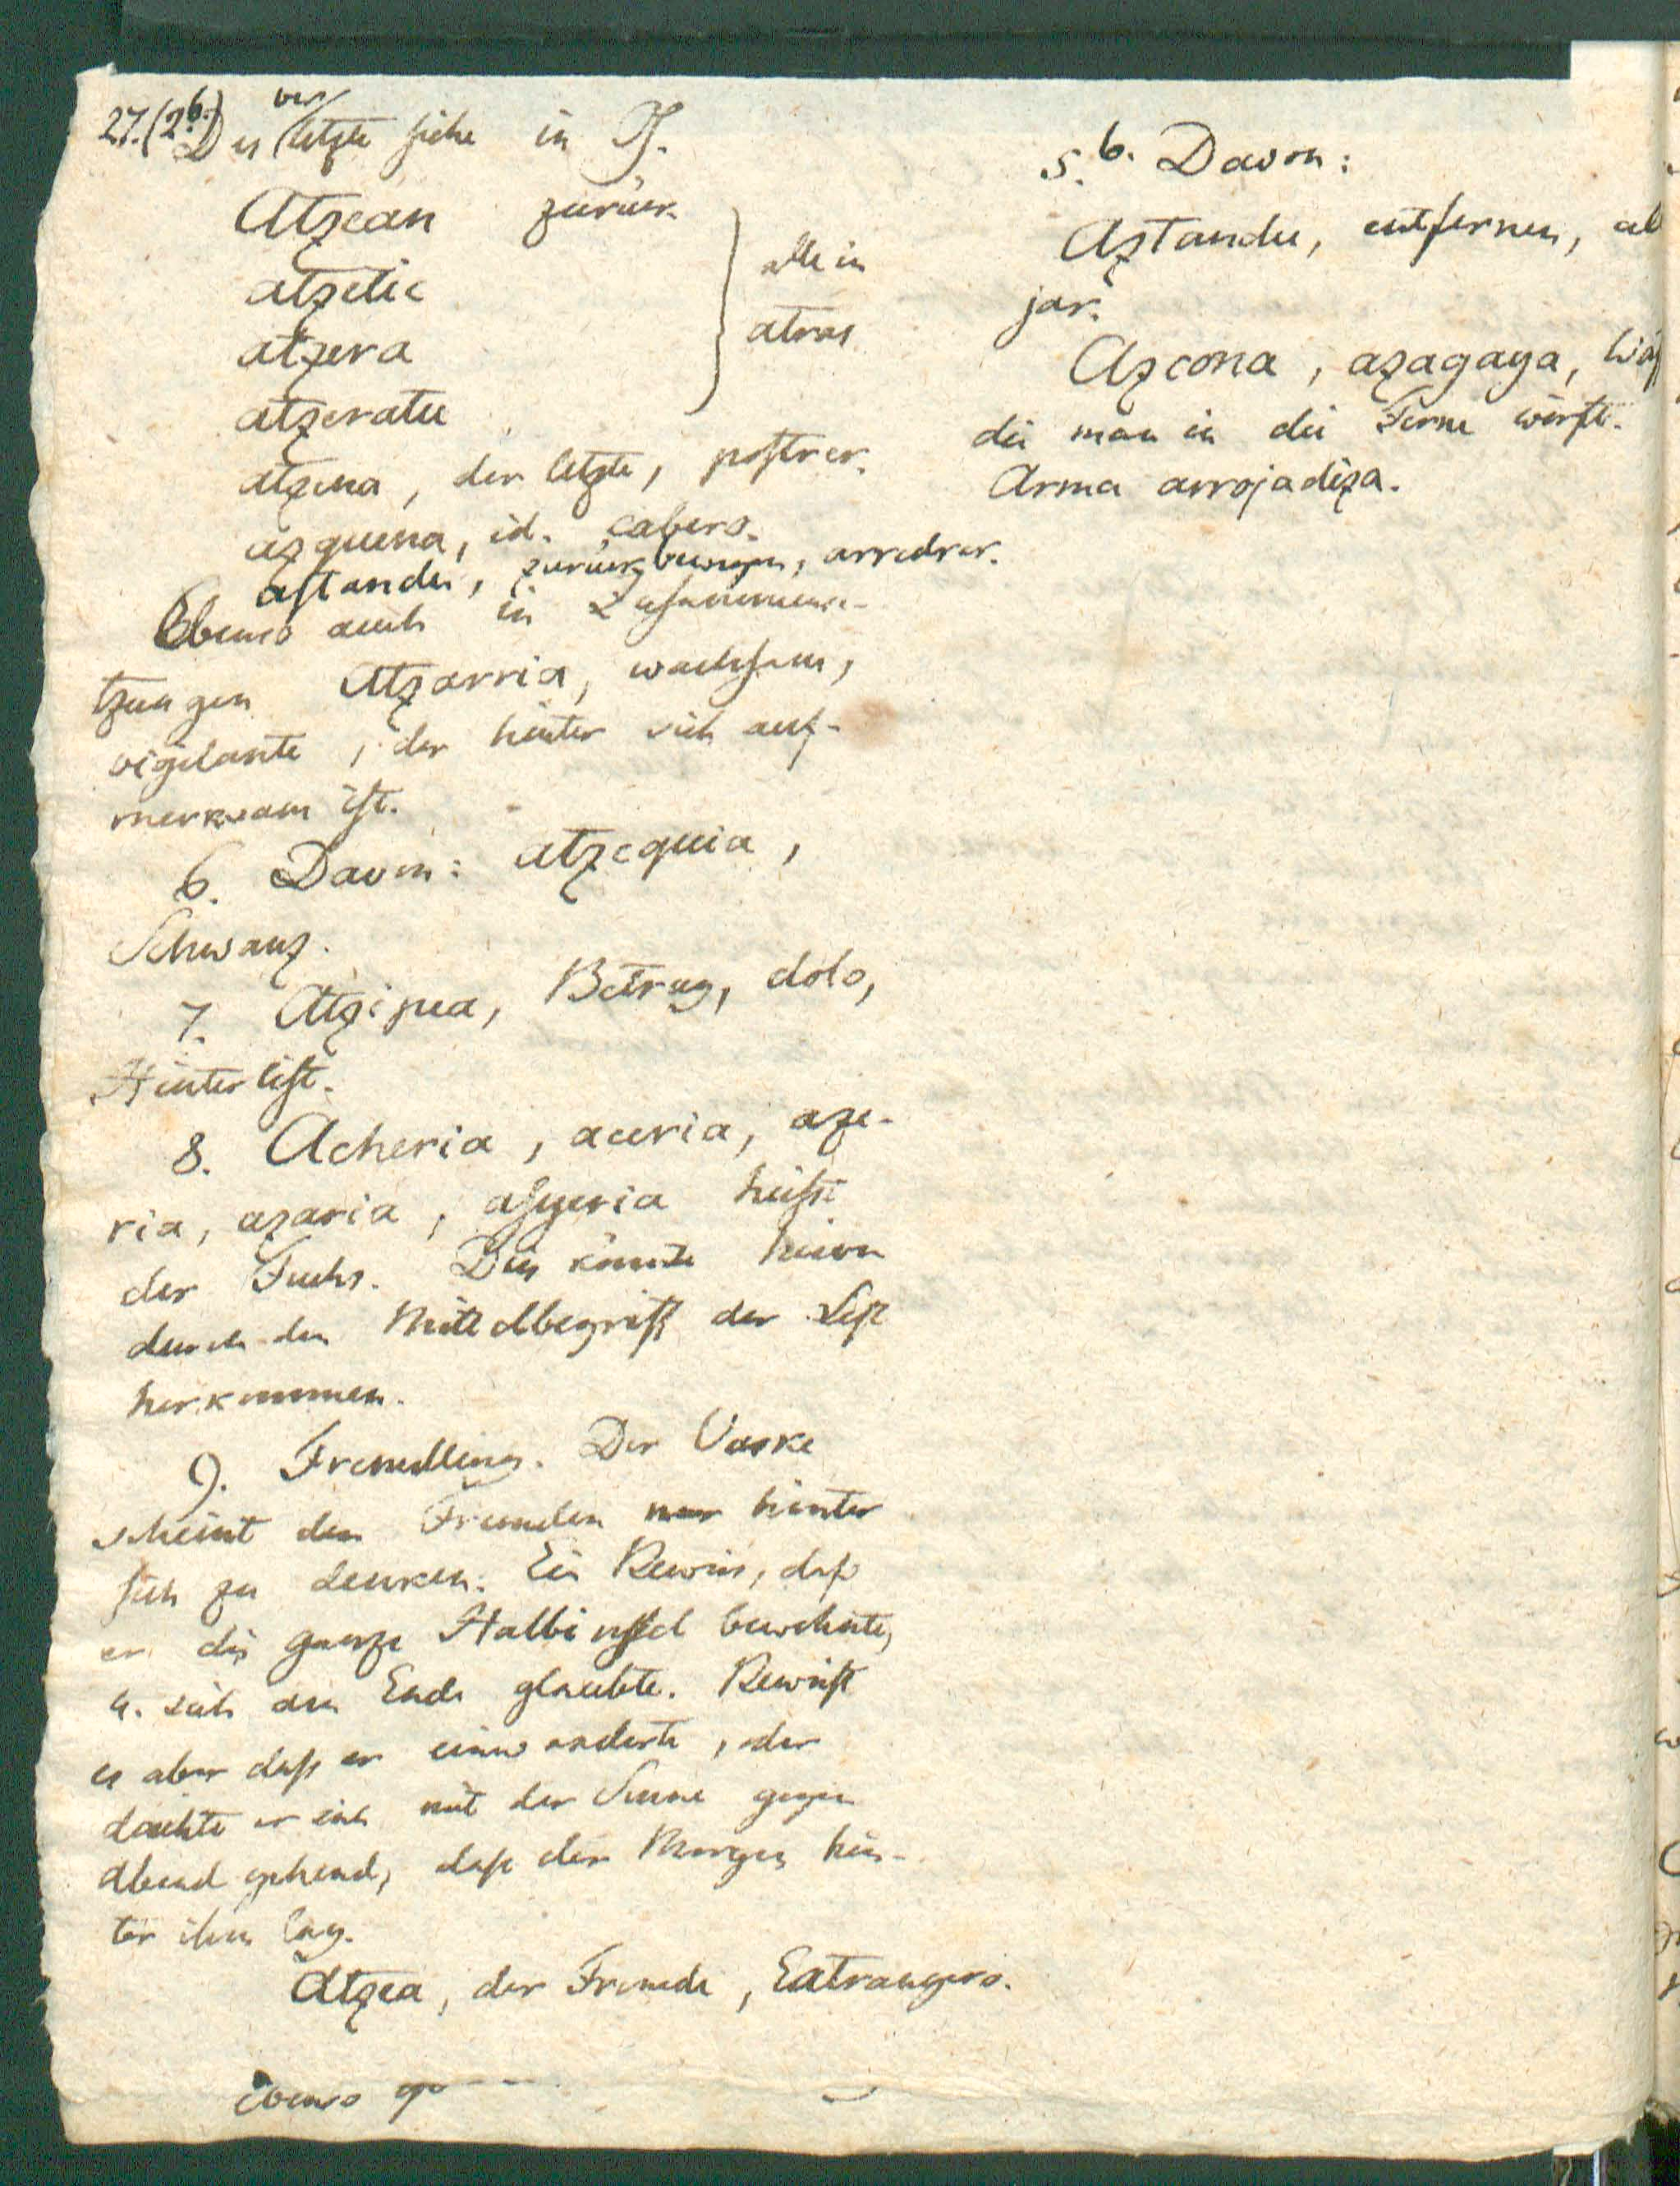 27. (2.b.) Des vorletzte siehe in J.
Atzean zurück
atzetic
atzera
atzeratu
alle in
atras
atzena, der letzte, postrer.
azquena, id. cabero.
astandu, zurückbewegen, arredrar.
Ebenso auch in Zusammense-
tzungen Atzarria, wachsam,
vigilante, der hinter sich auf-
merksam ist.
6. Davon: atzequia,
Schwanz.
7. Atzipea, Betrug, dolo,
Hinterlist.
8. Acheria, aceria, aze-
ria, azaria, heißt
der Fuchs. Dies könnte hievon
durch den Mittelbegriff der List
herkommen.
9. Fremdling. Der Vaske
scheint den Fremden nur hinter
sich zu denken. Ein Beweis, daß
er die ganze Halbinsel bewohnte,
u. sich am Ende glaubte. Beweist
es aber daß er einwanderte, oder
dachte er sich mit der Sonne gegen
Abend gehend, daß der Morgen hin-
ter ihm lag.
Atzea, der Fremde, Estrangero.
ebenso
5.b. Davon:
Aztandu, entfernen, al
jar.
Azcona, azagaya,
die man in die Ferne wirft.
Arma arrojadiza.